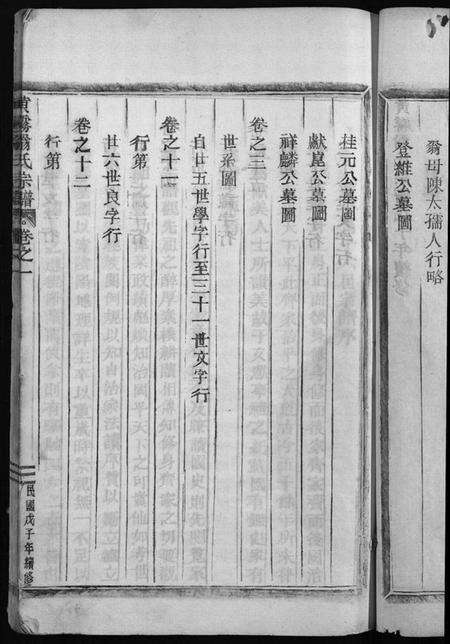 翁母陳太孺人行略
登維公墓圖
桂元公墓圖
獻崑公墓圖
祥麟公墓圖
卷之三
世系圖
自廿五世學字行至三十一世文字行
卷之十一
行第
廿六世良字行
卷之十二
行第
翁氏宗譜 卷之一
民國戊子年續修